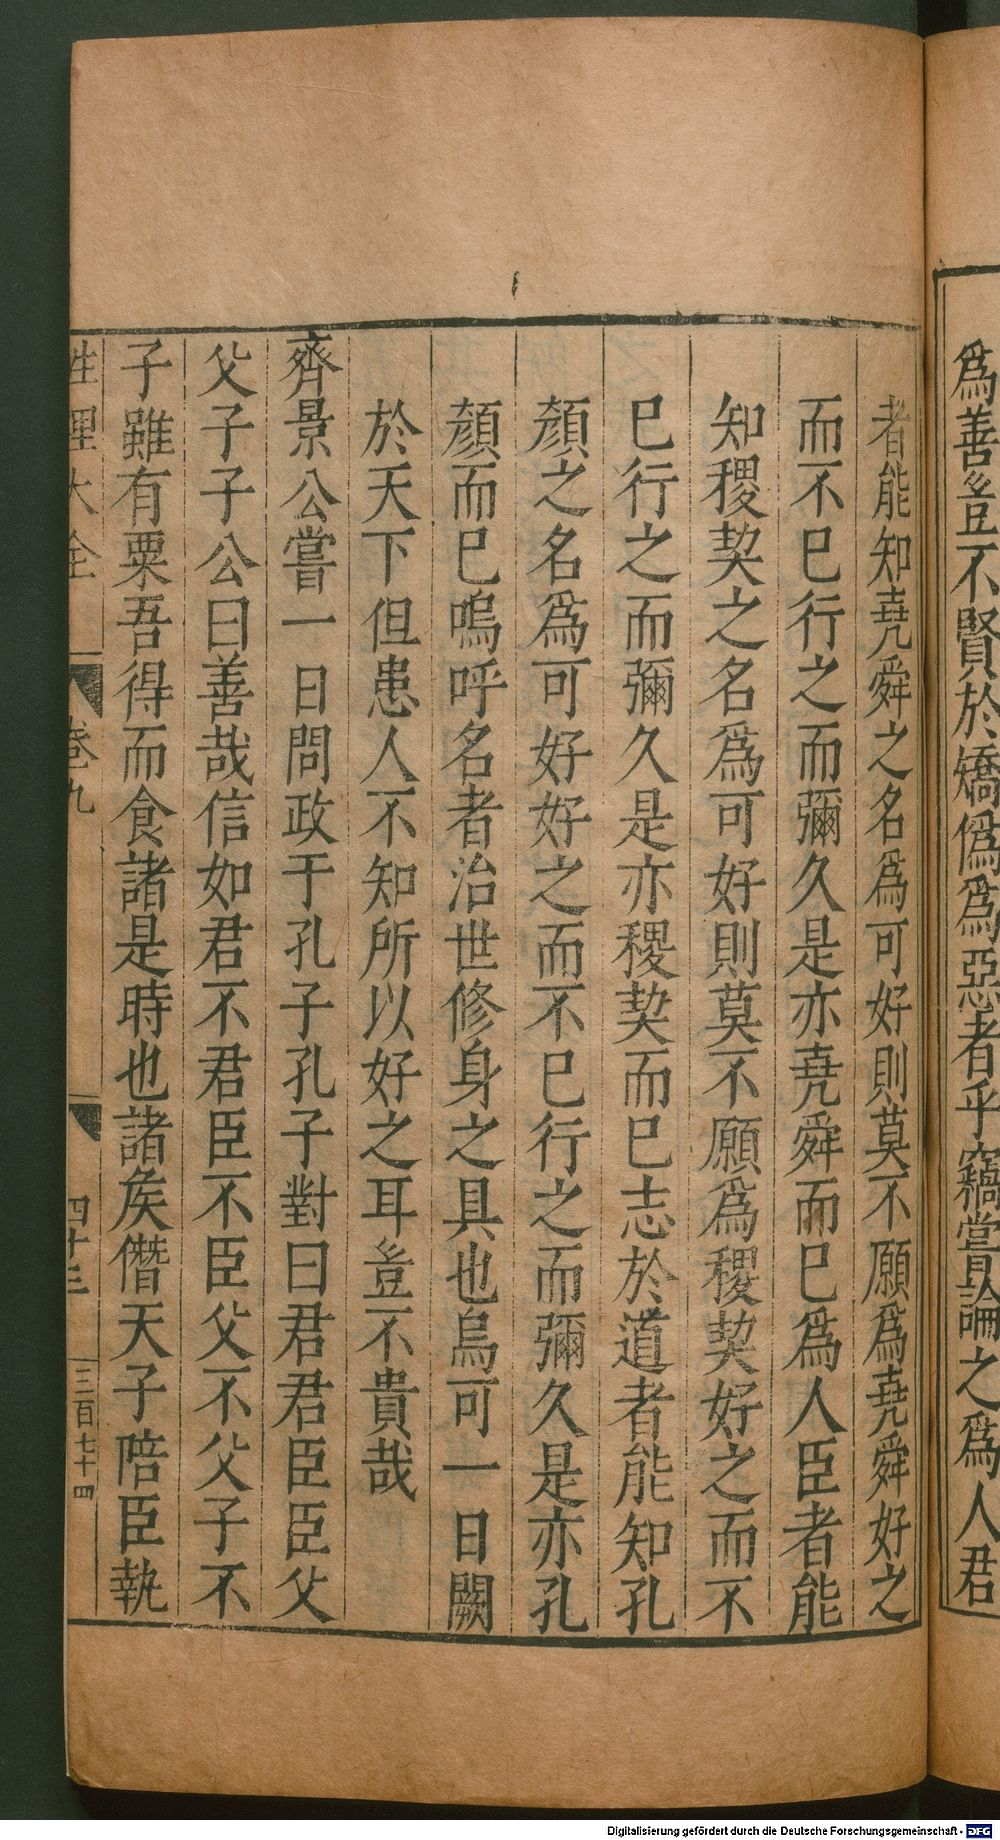 為善豈不賢於矯偽為惡者乎竊嘗論之為人君
者能知堯舜之名為可好則莫不願為堯舜好之
而不已行之而彌久是亦堯舜而已為人臣者能
知稷契之名為可好則莫不願為稷契好之而不
已行之而彌久是亦稷契而已志於道者能知孔
顏之名為可好好之而不已行之而彌久是亦孔
顏而已嗚呼名者治世修身之具也烏可一日闕
於天下但患人不知所以好之耳豈不貴哉
齊景公嘗一日問政于孔子孔子對曰君君臣臣父
父子子公曰善哉信如君不君臣不臣父不父子不
子雖有粟吾得而食諸是時也諸侯僭天子陪臣執
性理大全 卷九 四十三 三百七十四
Digitalisierung gefördert durch die Deutsche Forschungsgemeinschaft - DFG